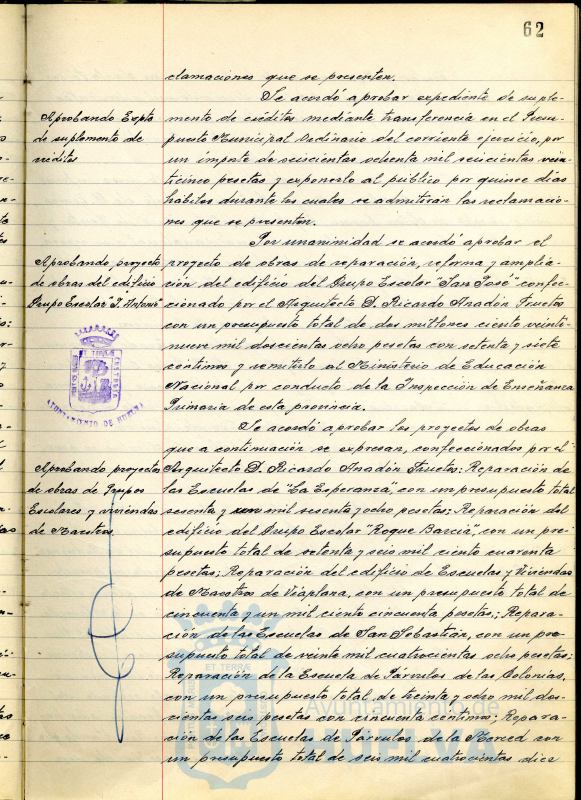 62
clamaciones que se presenten.
Se acordó aprobar expediente de suple-
mento de créditos mediante transferencia en el Presu-
puesto Municipal Ordinario del corriente ejercicio, por
un importe de seiscientas ochenta mil seiscientas vein-
ticinco pesetas y exponerlo al público por quince días
hábiles durante los cuales se admitirán las reclamacio-
nes que se presenten.
Aprobando Expte
de suplemento de
créditos
Por unanimidad se acordó aprobar el
proyecto de obras de reparación, reforma y amplia-
ción del edificio del Grupo Escolar "San José" confec-
cionado por el Arquitecto D. Ricardo Anadón Frutos
con un presupuesto total de dos millones ciento veinti-
nueve mil doscientas ocho pesetas con setenta y siete
céntimos y remitirlo al Ministerio de Educación
Nacional por conducto de la Inspección de Enseñanza
Primaria de esta provincia.
Aprobando, proyecto
de obras del edificio
Grupo Escolar "J. Antonio"
AYUNTAMIENTO DE HUELVA
Se acordó aprobar los proyectos de obras
que a continuación se expresan, confeccionados por el
Arquitecto D. Ricardo Anadón Frutos: Reparación de
las Escuelas de "La Esperanza", con un presupuesto total
sesenta y un mil sesenta y ocho pesetas; Reparación del
edificio del Grupo Escolar "Roque Barcia", con un pre-
supuesto total de setenta y seis mil ciento cuarenta
pesetas; Reparación del edificio de Escuelas y Viviendas
de Maestros de Viaplana, con un presupuesto total de
cincuenta y un mil ciento cincuenta pesetas,; Repara-
ción de las Escuelas de San Sebastián, con un pre-
supuesto total de veinte mil cuatrocientas ocho pesetas;
Reparación de la Escuela de Párvulos de las Colonias,
con un presupuesto total de treinta y ocho mil dos-
cientas seis pesetas con cincuenta céntimos; Repara-
ción de las Escuelas de Párvulos de la Merced con
un presupuesto total de seis mil cuatrocientas diez
Aprobando, proyectos
de obras de Grupos
Escolares y viviendas
de Maestros.
ET TERRÆ
Ayuntamiento de
HUELVA